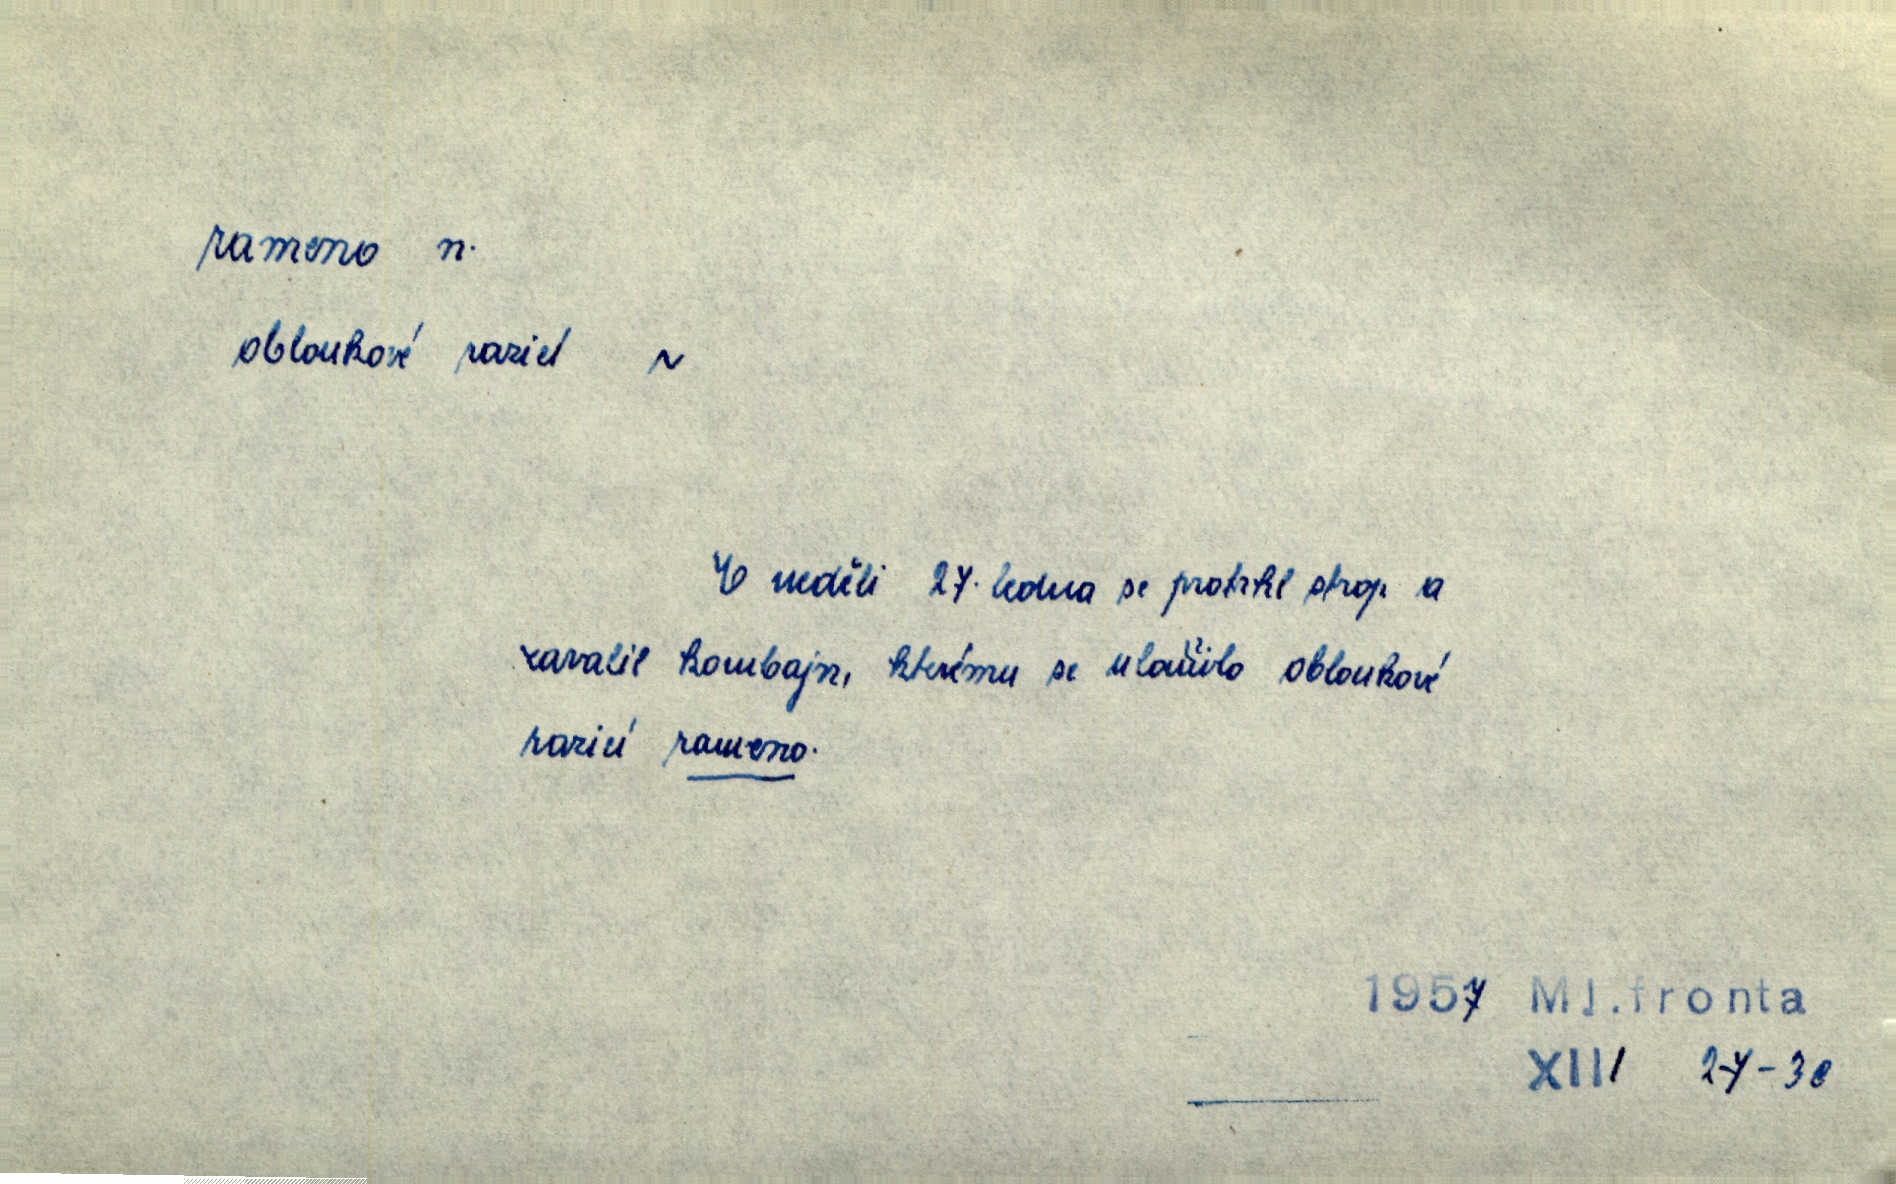 rameno n.
obloukové razicí ~
V neděli 27. ledna se protrhl strop a
zavalil kombajn, kterému se ulomilo obloukové
razicí rameno.
1957 Ml.fronta
XIII 27-3